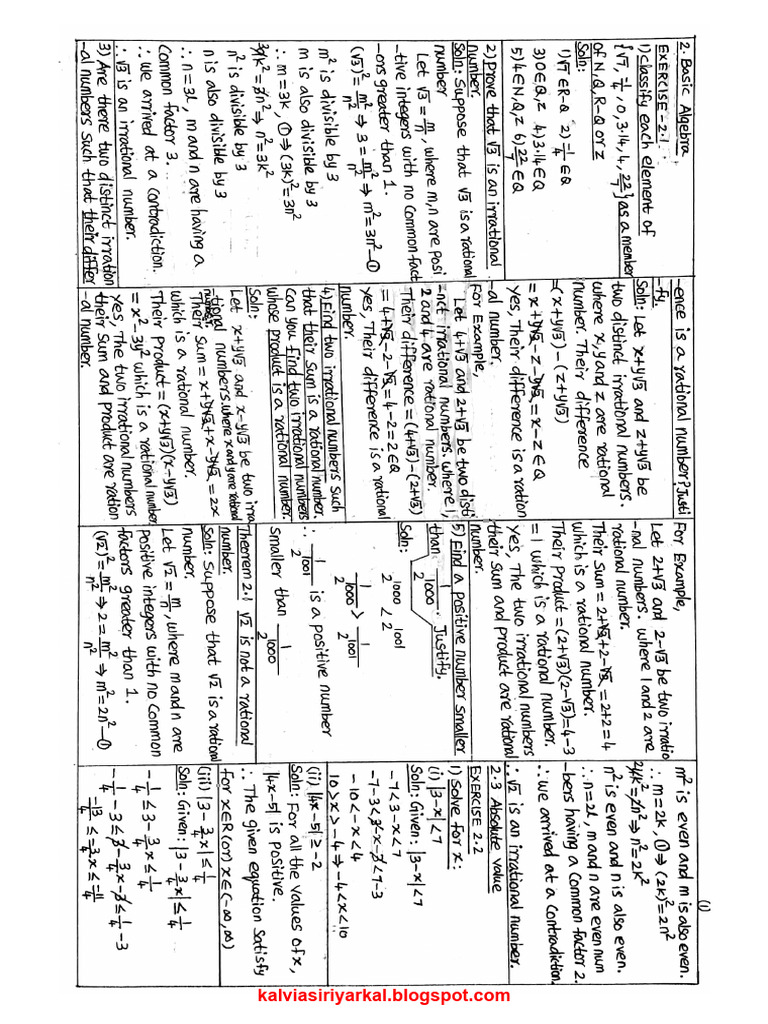 (1)
2. Basic Algebra
EXERCISE-2.1
1) Classify each element of
{√7, -1/4, 0, 3.14, 4, 22/7} as a member
of N, Q, R-Q or Z
Soln:
1) √7 ∈ R-Q 2) -1/4 ∈ Q
3) 0 ∈ Q, Z 4) 3.14 ∈ Q
5) 4 ∈ N, Q, Z 6) 22/7 ∈ Q
2) Prove that √3 is an irrational
number.
Soln: Suppose that √3 is a rational
number
Let √3 = m/n, where m,n are Posi
-tive integers with no Common fact
-ors greater than 1.
(√3)² = m²/n² ⇒ 3 = m²/n² ⇒ m² = 3n² –①
m² is divisible by 3
m is also divisible by 3
∴ m = 3k, ① ⇒ (3k)² = 3n²
9k² = 3n² ⇒ n² = 3k²
n² is divisible by 3
n is also divisible by 3
∴ n = 3l, m and n are having a
Common factor 3.
∴ we arrived at a contradiction.
∴ √3 is an irrational number.
3) Are there two distinct irration
-al numbers such that their differ
-ence is a rational number? Justi
-fy.
Soln: Let x+y√3 and z+y√3 be
two distinct irrational numbers.
where x,y and z are rational
number. Their difference
= (x+y√3) - (z+y√3)
= x+y√3 - z - y√3 = x - z ∈ Q
yes, Their difference is a ration
-al number.
For Example,
Let 4+√3 and 2+√3 be two disti
-nct irrational numbers. where 1,
2 and 4 are rational number.
Their difference = (4+√3) - (2+√3)
= 4+√3 - 2 - √3 = 4-2 = 2 ∈ Q
yes, Their difference is a rational
number.
4) Find two irrational numbers Such
that their Sum is a rational number.
Can you find two irrational numbers
whose Product is a rational number.
Soln:
Let x+y√3 and x-y√3 be two irra
-tional numbers. where x and y are rational
number.
Their Sum = x+y√3+x-y√3 = 2x
which is a rational number.
Their Product = (x+y√3)(x-y√3)
= x²-3y² which is a rational number
yes, The two irrational numbers
their Sum and Product are ration
-al number.
For Example,
Let 2+√3 and 2-√3 be two irratio
-nal numbers. where 1 and 2 are
rational number.
Their Sum = 2+√3+2-√3 = 2+2 = 4
which is a rational number.
Their Product = (2+√3)(2-√3) = 4-3
= 1 which is a rational number.
yes, The two irrational numbers
their Sum and Product are rational
number.
5) Find a positive number smaller
than 1/2^1000. Justify.
Soln:
2^1000 < 2^1001
1/2^1000 > 1/2^1001
∴ 1/2^1001 is a positive number
smaller than 1/2^1000
Theorem 2.1 √2 is not a rational
number.
Soln: Suppose that √2 is a rational
Let √2 = m/n, where m and n are
Positive integers with no Common
factors greater than 1.
(√2)² = m²/n² ⇒ 2 = m²/n² ⇒ m² = 2n² –①
m² is even and m is also even.
∴ m = 2k, ① ⇒ (2k)² = 2n²
4k² = 2n² ⇒ n² = 2k²
n² is even and n is also even.
∴ n = 2l, m and n are even num
-bers having a Common factor 2.
∴ we arrived at a Contradiction.
∴ √2 is an irrational number.
2.3 Absolute value
EXERCISE 2.2
1) Solve for x:
(i) |3-x| < 7
Soln: Given: |3-x| < 7
-7 < 3-x < 7
-7-3 < 3-x-3 < 7-3
-10 < -x < 4
10 > x > -4 ⇒ -4 < x < 10
(ii) |4x-5| ≥ -2
Soln: For all the values of x,
|4x-5| is positive.
∴ The given equation Satisfy
for x∈R (or) x∈(-∞,∞)
(iii) |3 - 3/4 x| ≤ 1/4
Soln: Given: |3 - 3/4 x| ≤ 1/4
-1/4 ≤ 3 - 3/4 x ≤ 1/4
-1/4 - 3 ≤ 3 - 3/4 x - 3 ≤ 1/4 - 3
-13/4 ≤ -3/4 x ≤ -11/4
kalviasiriyarkal.blogspot.com